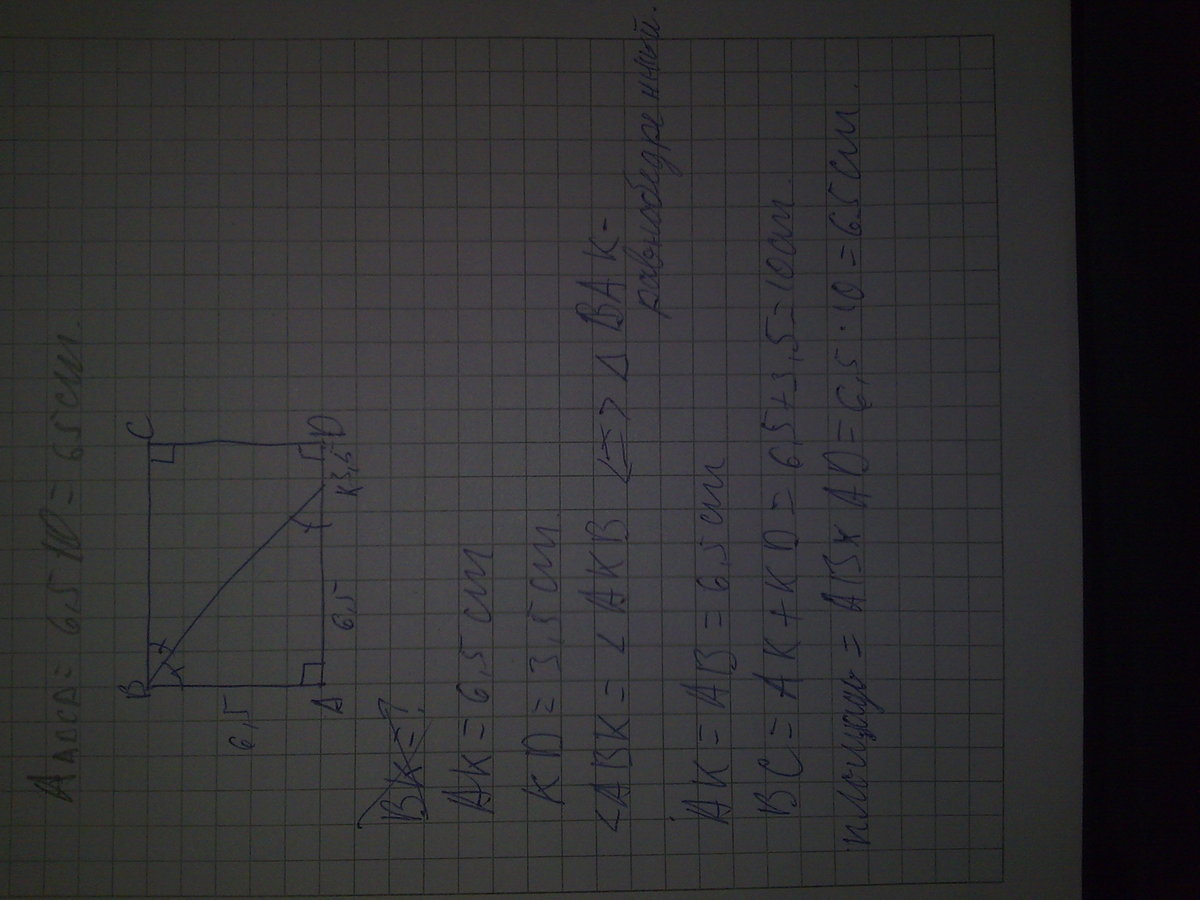 A ABCD = 6,5 10 = 65 см.
B
C
6,5
6,5
A
K 3,5 D
BK = ?
AK = 6,5 см
KD = 3,5 см
<ABK = <AKB <=> Δ BAK -
равнобедренный.
AK = AB = 6,5 см
BC = AK + KD = 6,5+3,5=10см.
площадь = AB x AD = 6,5 · 10 = 65 см.